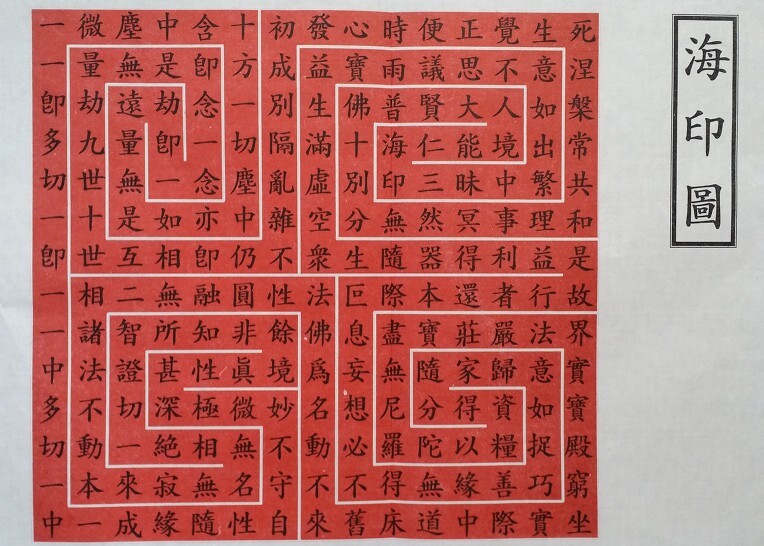 海印圖
死涅槃常共和是故界實寶殿窮坐
生意如出繁理益行法意如捉巧實
覺不人境中事利者嚴歸資糧善際
正思大能昧冥得還莊家得以緣中
便議賢仁三然器本寶隨分陀無道
時雨普海印無隨際盡無尼羅得床
心寶佛十別分生叵息妄想必不舊
發益生滿虛空衆法佛爲名動不來
初成別隔亂雜不性餘境妙不守自
十方一切塵中仍圓非眞微無名性
含卽念一念亦卽融知性極相無隨
中是劫卽一如相無所甚深絕寂緣
塵無遠量無是互二智證切一來成
微量劫九世十世相諸法不動本一
一一卽多切一卽一一中多切一中